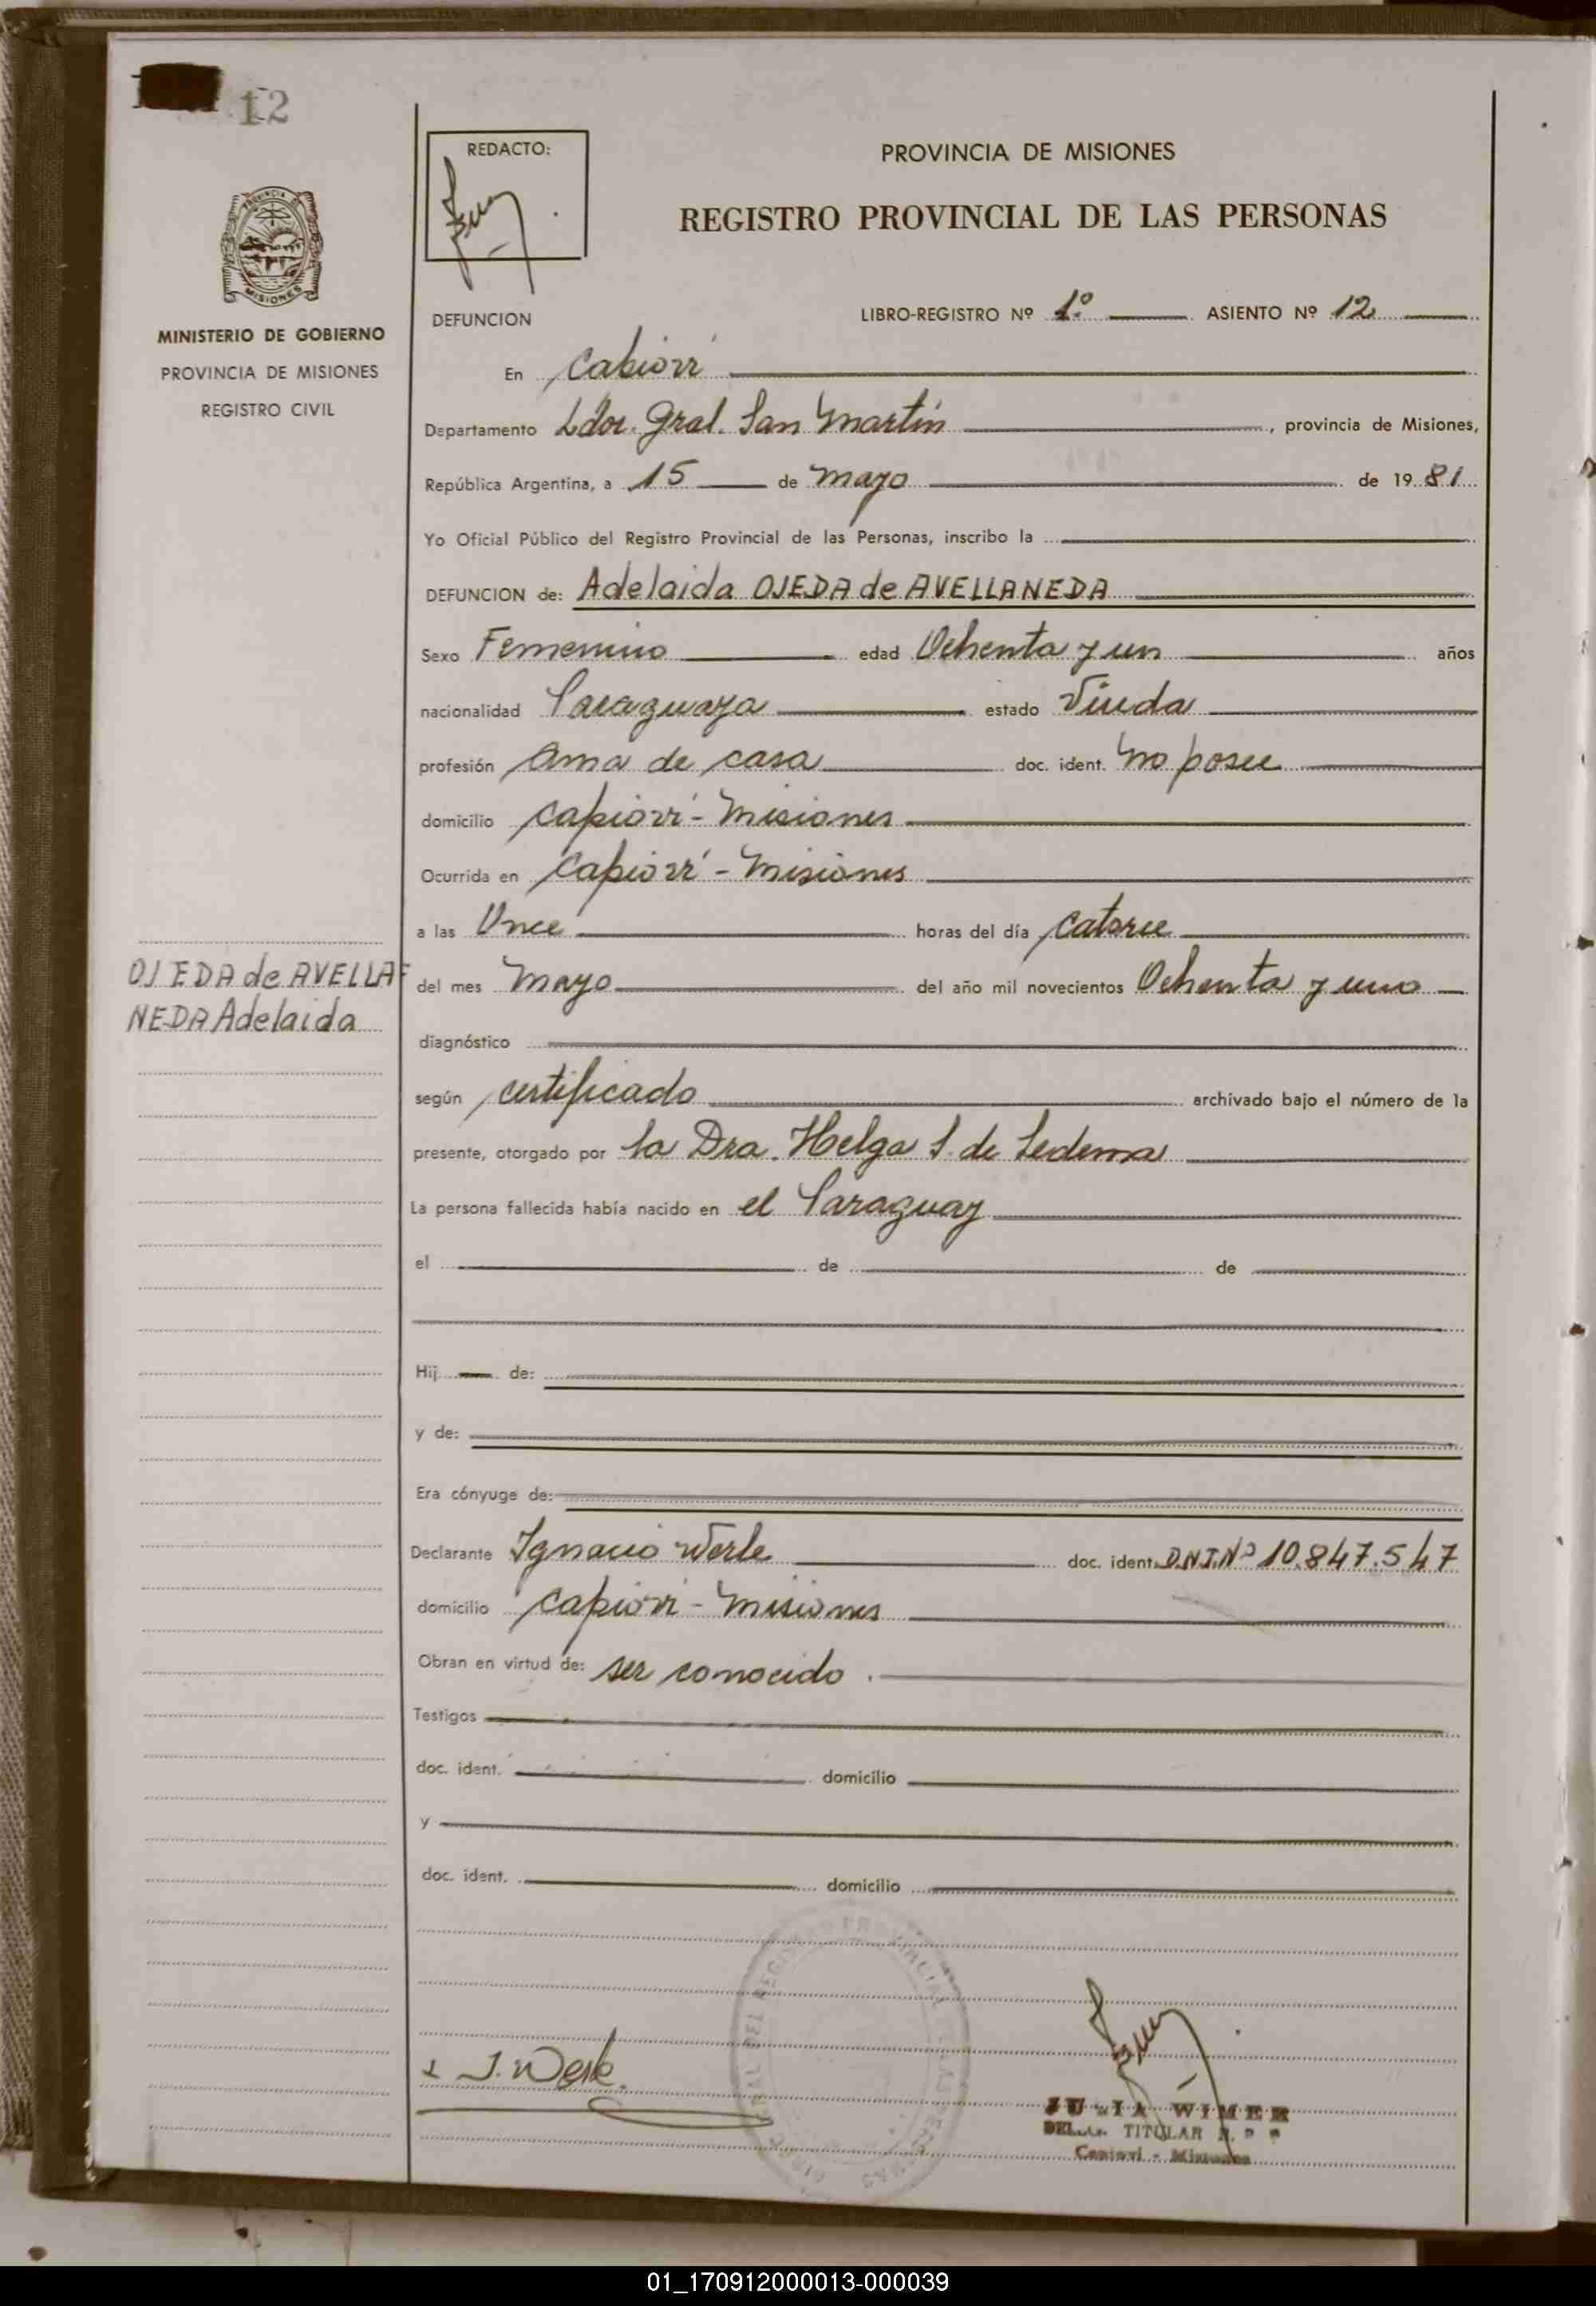 12
REDACTO:
PROVINCIA DE MISIONES
REGISTRO PROVINCIAL DE LAS PERSONAS
PROVINCIA DE
MISIONES
MINISTERIO DE GOBIERNO
PROVINCIA DE MISIONES
REGISTRO CIVIL
DEFUNCION
LIBRO-REGISTRO Nº 1º ASIENTO Nº 12
En Capioví
Departamento Ldor. Gral. San Martín, provincia de Misiones,
República Argentina, a 15 de mayo de 1981
Yo Oficial Público del Registro Provincial de las Personas, inscribo la
DEFUNCION de: Adelaida OJEDA de AVELLANEDA
Sexo Femenino edad Ochenta y un años
nacionalidad Paraguaya estado Viuda
profesión Ama de casa doc. ident. No posee
domicilio Capioví - Misiones
Ocurrida en Capioví - Misiones
a las Once horas del día Catorce
OJEDA de AVELLA=
NEDA Adelaida
del mes Mayo del año mil novecientos Ochenta y uno
diagnóstico
según certificado archivado bajo el número de la
presente, otorgado por la Dra. Helga S. de Ledema
La persona fallecida había nacido en el Paraguay
el de de
Hij de:
y de:
Era cónyuge de:
Declarante Ignacio Werle doc. ident. D.N.I. Nº 10.847.547
domicilio Capioví - Misiones
Obran en virtud de: ser conocido.
Testigos
doc. ident. domicilio
y
doc. ident. domicilio
I. Werle.
JULIA WIMER
TITULAR
Capioví - Misiones
01_170912000013-000039